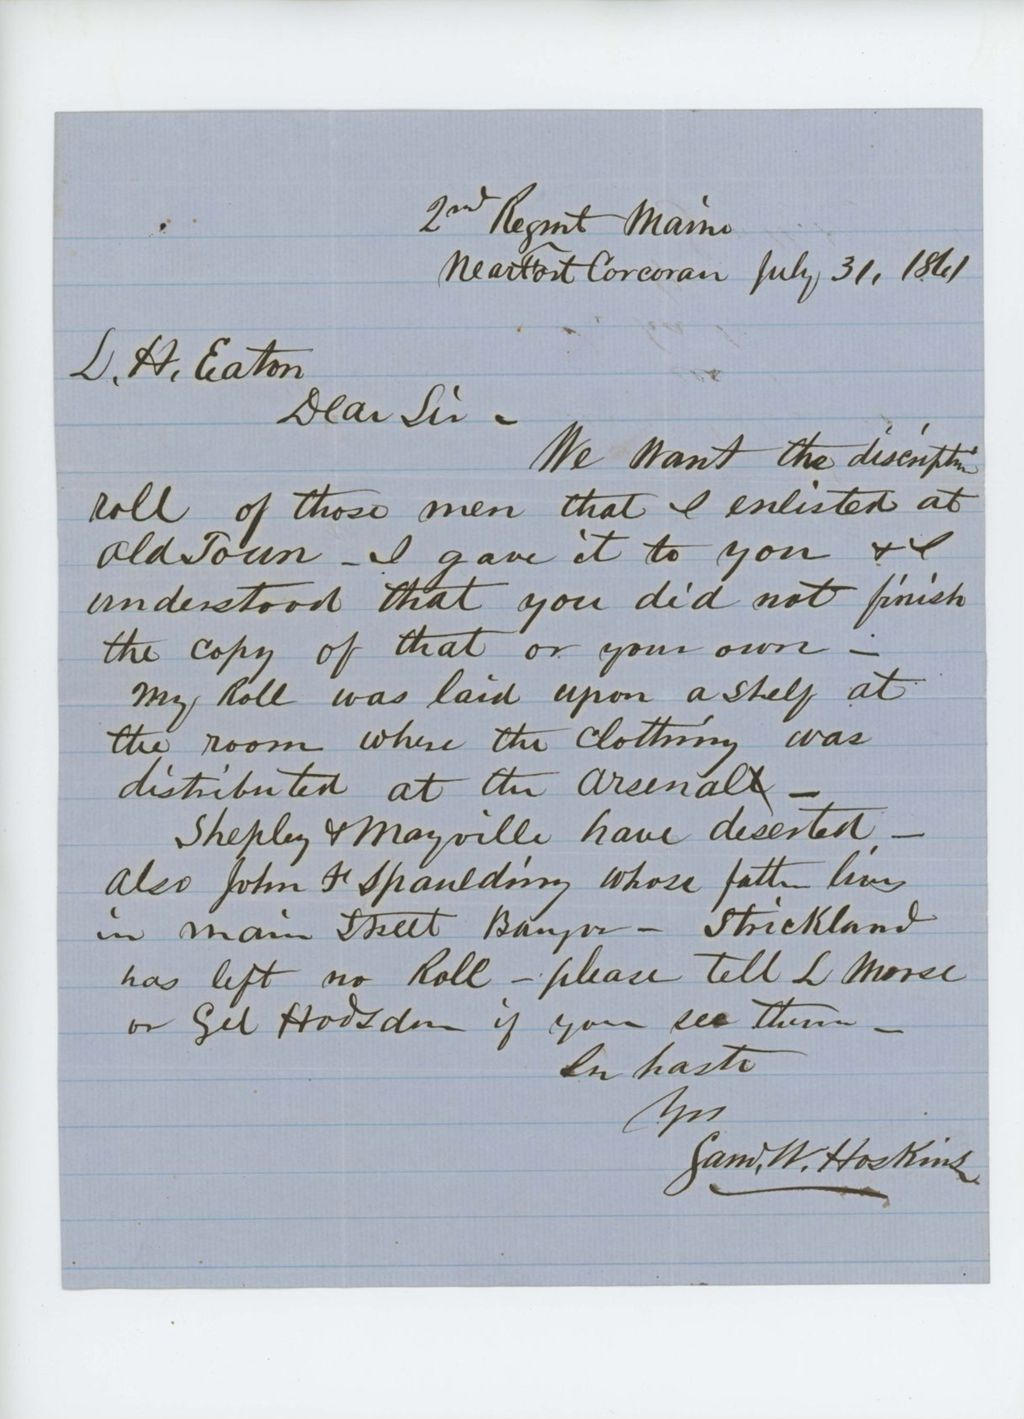 2nd Regmt Maine
Near Fort Corcoran July 31, 1861
L. H. Eaton
Dear Sir -
We want the discriptive
roll of those men that I enlisted at
Old Town - I gave it to you & I
understood that you did not finish
the copy of that or your own -
My Roll was laid upon a shelf at
the room where the clothing was
distributed at the Arsenal -
Shepley & Mayville have deserted -
also John F Spaulding whose father lives
in main Street Bangor - Strickland
has left no Roll - please tell L Morse
or Gel Hodsdon if you see them -
In haste
Yrs
Saml. W. Hoskins